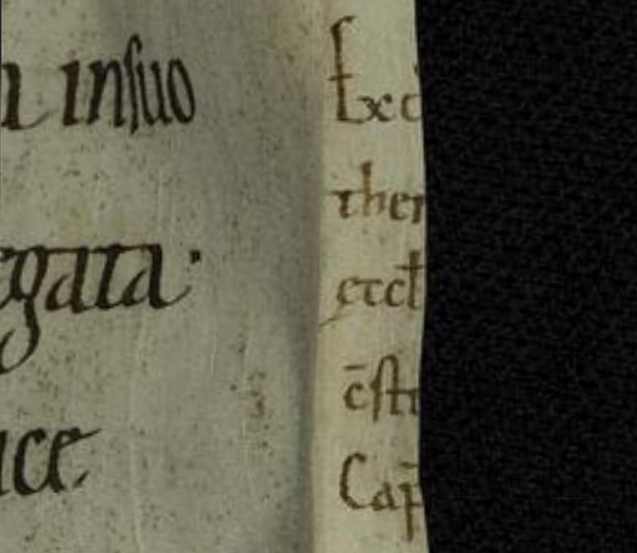 insuo
egata·
uce
Exc
ther
eccl
c̄sti
Cap̄